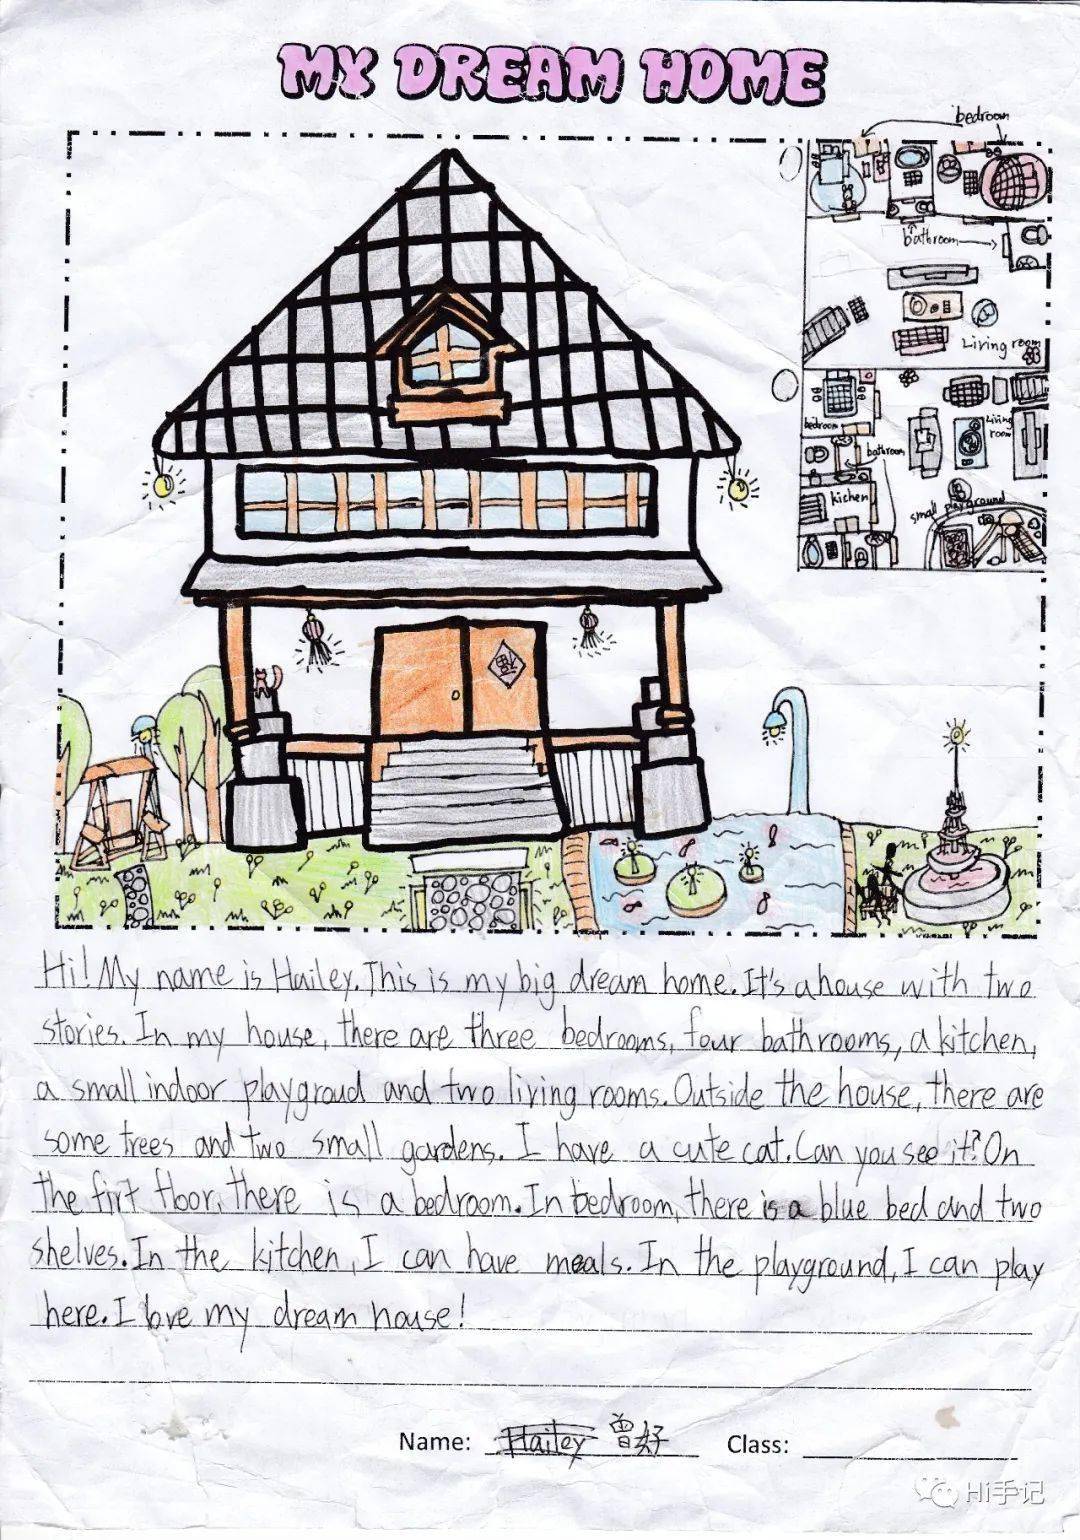 MY DREAM HOME
bedroom
bathroom
Living room
bedroom
Living
room
bathroom
kichen
small playground
福
Hi! My name is Hailey. This is my big dream home. It's a house with two
stories. In my house, there are three bedrooms, four bathrooms, a kitchen,
a small indoor playgroud and two living rooms. Outside the house, there are
some trees and two small gardens. I have a cute cat. Can you see it? On
the firt floor, there is a bedroom. In bedroom, there is a blue bed and two
shelves. In the kitchen, I can have meals. In the playground, I can play
here. I love my dream house!
Name: Hailey 曾好 Class:
Hi手记